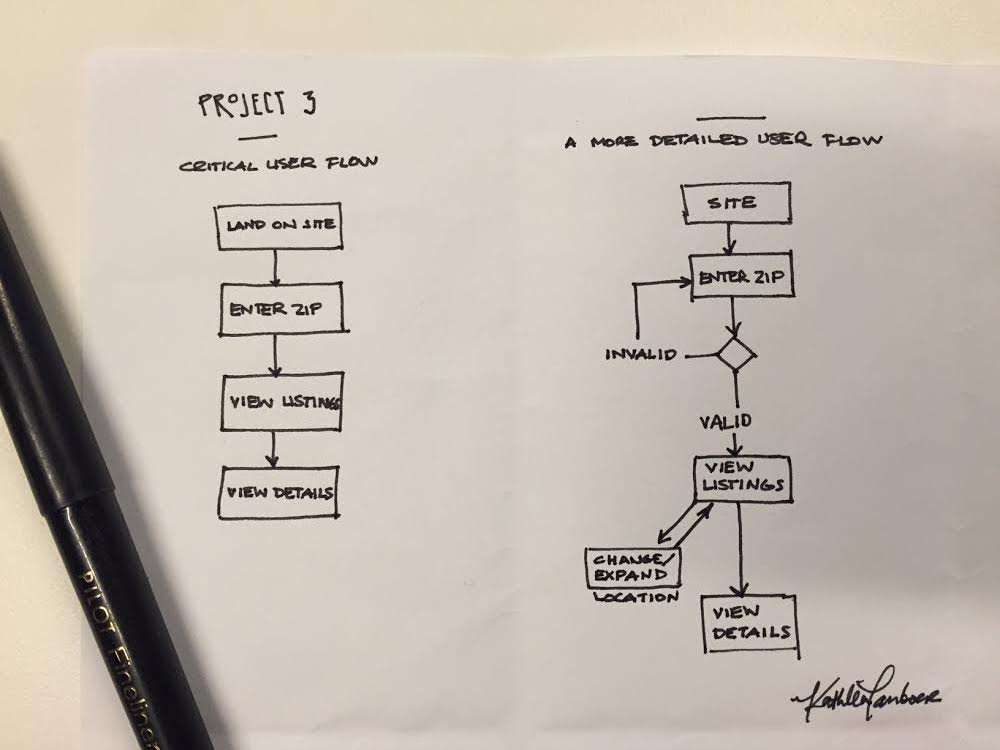 PROJECT 3
CRITICAL USER FLOW
LAND ON SITE
ENTER ZIP
VIEW LISTINGS
VIEW DETAILS
A MORE DETAILED USER FLOW
SITE
ENTER ZIP
INVALID
VALID
VIEW
LISTINGS
CHANGE/
EXPAND
LOCATION
VIEW
DETAILS
PILOT Fineliner